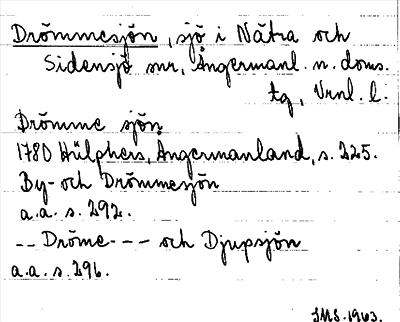 Drömmesjön, sjö i Nätra och
Sidensjö snr, Ångermanl. n. doms.
tg, Vrnl. l.
Drömme sjön
1780 Hülphers, Ångermanland, s. 225.
By- och Drömmesjön
a.a. s. 292.
-- Dröme -- och Djupsjön
a.a. s. 296.
IMS. 1963.